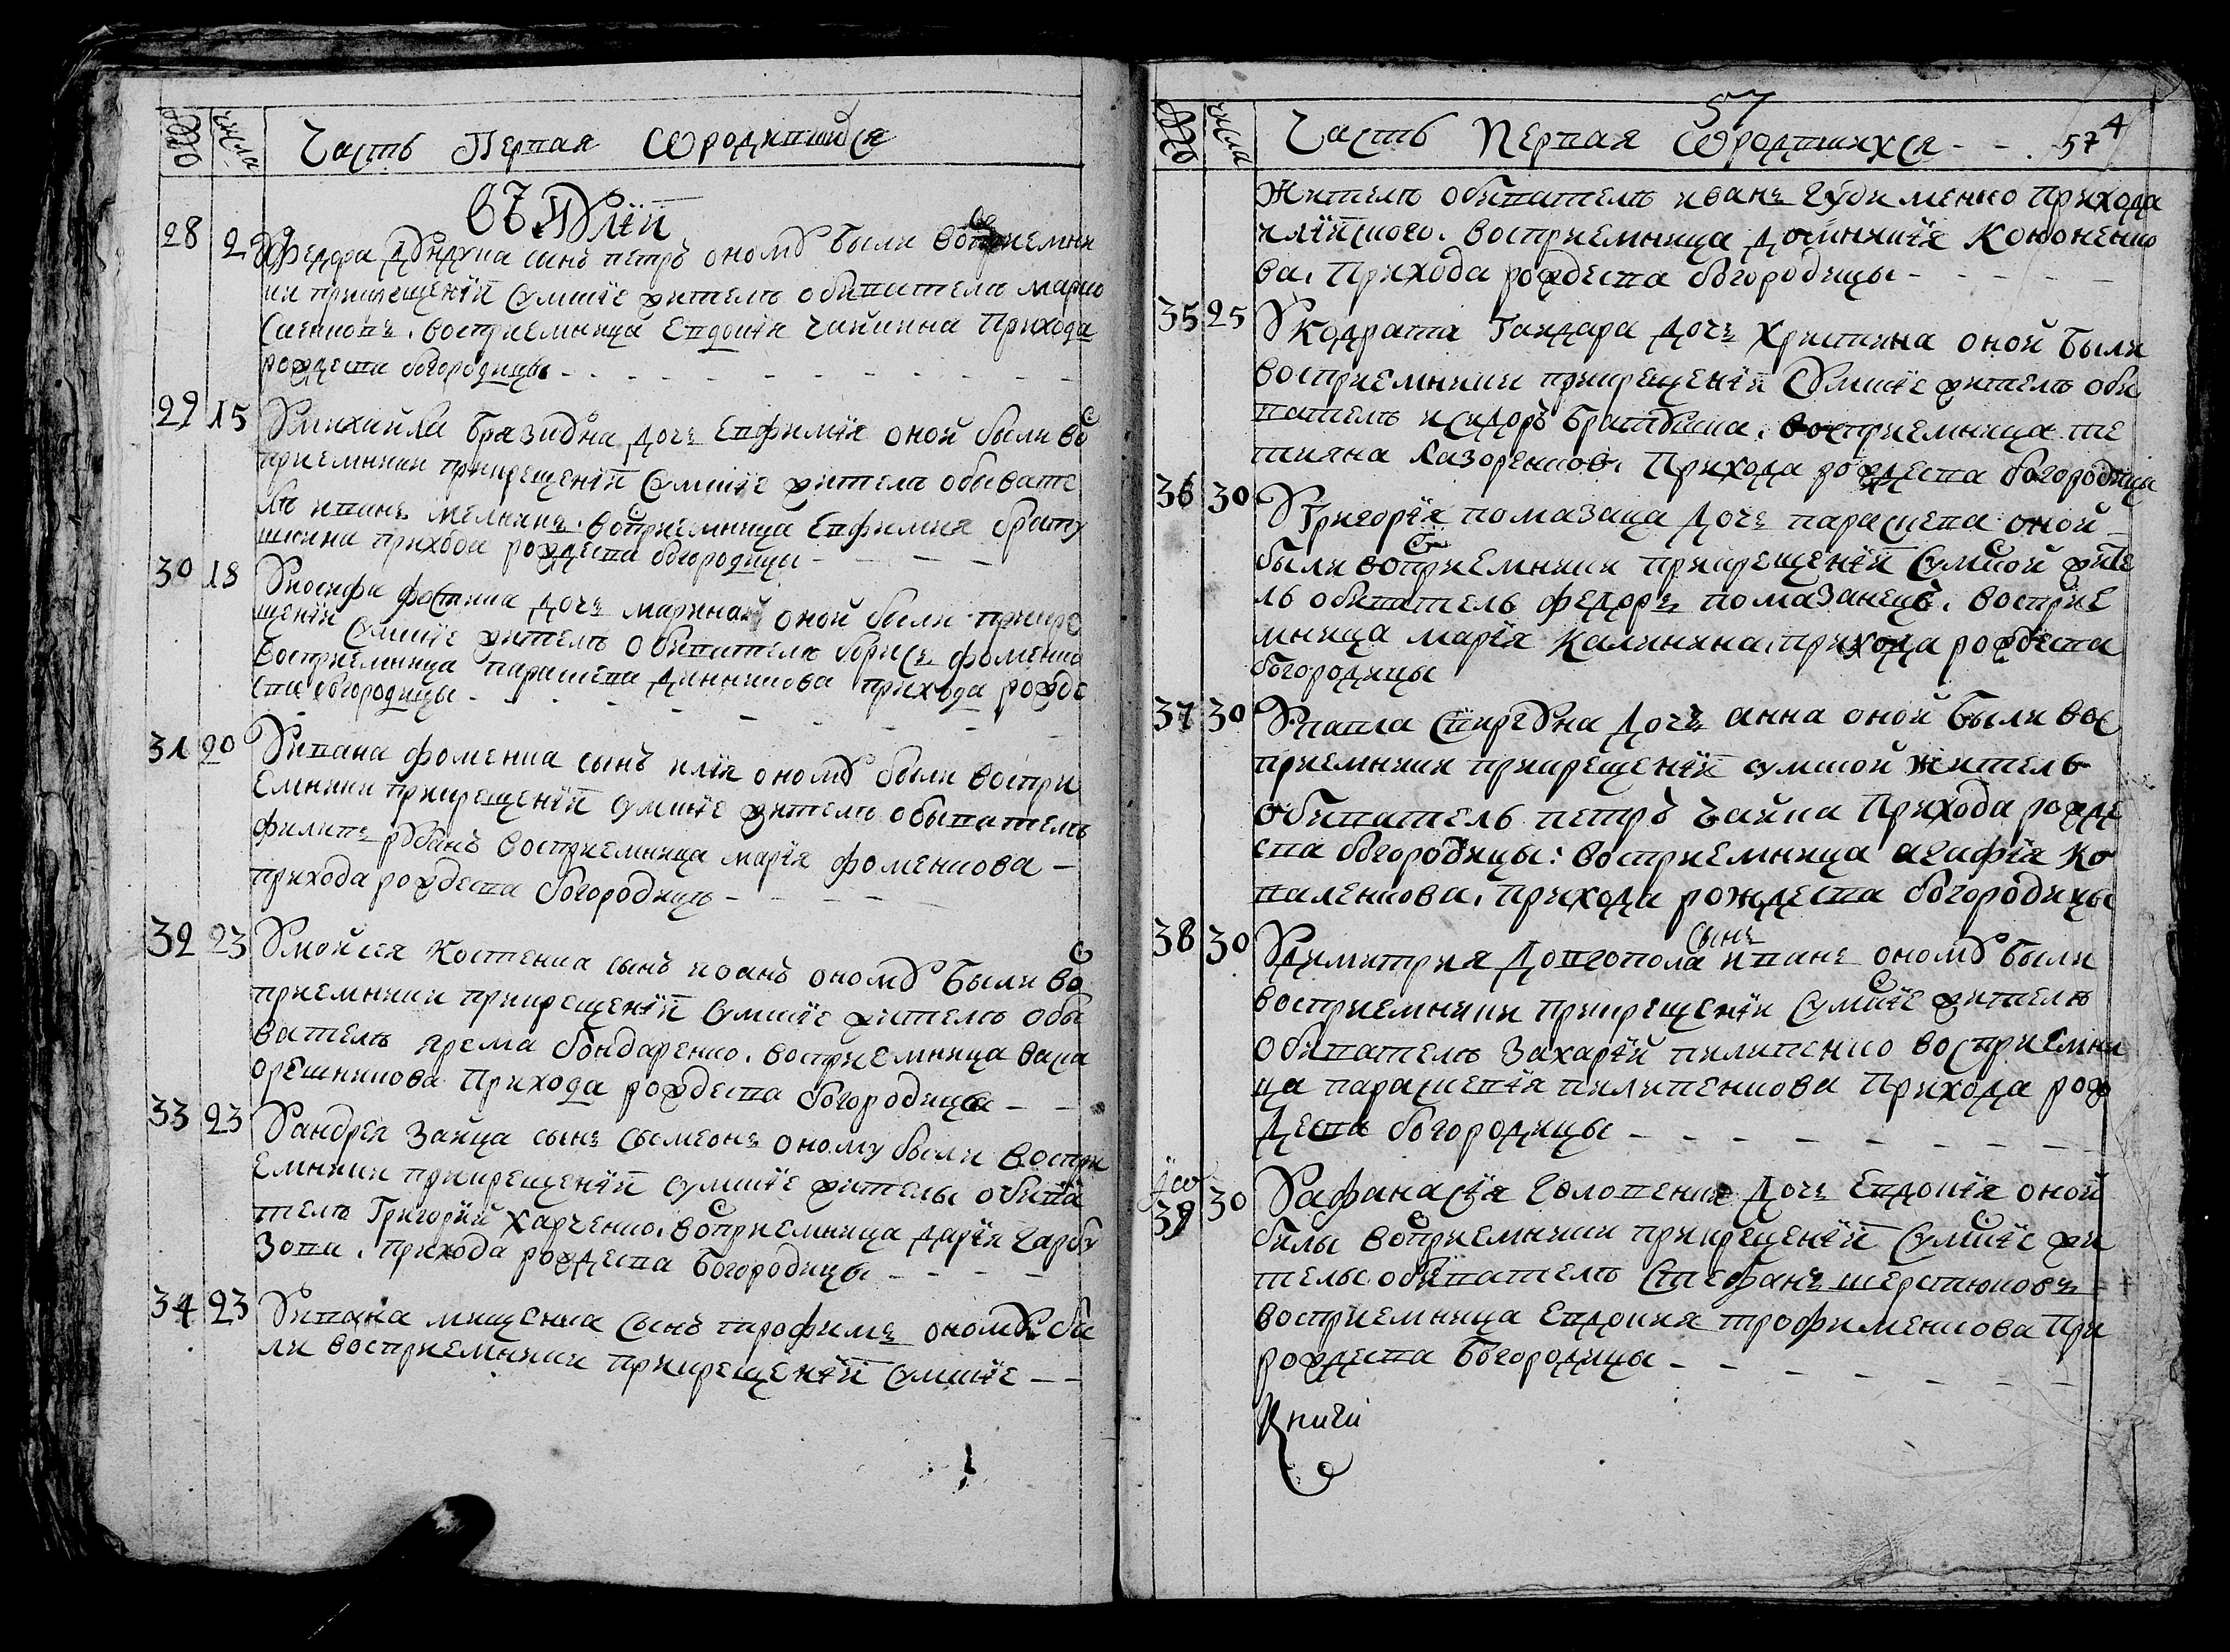 числа
Часть Первая ѡродившихся
въ Июлїи
28 2 У федора дундука синъ петръ оному были восприемни
ки прикрещенїи сумские жители обиватели марко
саенковъ. восприемница Евдокїя чайкина Прихода
рождества богородицы - - -
29 15 У михайла бразиуна дочь Евфимїя оной были вос
приемники прикрещенїи Сумские жители обывате
ли иванъ мелникъ. восприемница Евфимия брату
шкина прихода рождества богородицы - - -
30 18 У иосифа дочь марина оной были прикре
щенїи Сумские жители обиватели борисъ фоменко
восприемница параскева динникова прихода рожде
ства богородицы - - -
31 20 У ивана фоменка сынъ илїя оному были воспри
емники прикрещенїи сумские жители обыватели
филипъ рубанъ восприемница марїя фоменкова -
прихода рождества богородицы - - -
32 23 У мойсея Костенка сынъ иоанъ оному были вос
приемники прикрещенїи Сумские жители обы
ватели ярема бондаренко. восприемница васа
орешникова Прихода рождества богородицы - -
33 23 У андрея Зайца сынъ сымеонъ оному были воспри
емники прикрещенїи сумские жителы обива
тели Григорий харченко. восприемница дарїя гарбу
зова. прихода рождества богородицы - - -
34 23 У ивана мищенка сынъ трофимъ оному бы
ли восприемники прикрещенїи сумские - -
57
числа
Часть Первая ѡродившихся - - 57 4
жители обиватели иванъ гудименко прихода
илїинского. восприемница домникїя Кононенко
ва. Прихода рождества богородицы - - -
35 25 У Кодрата Гандара дочь христина оной были
восприемники прикрещенїи Сумские жители оби
ватели исидоръ братушка. восприемница те
тияна лазоренков. Прихода рождества богородицы
36 30 У Григорїя помазаца дочь параскева оной
были восприемники прикрещенїи Сумской жите
ль обиватель федоръ помазанецъ. восприе
мница марїя Калинина. прихода рождества
богородицы
37 30 У павла спиридуна дочь анна оной были вос
приемники прикрещенїи сумской житель
обиватель петръ чайка Прихода рожде
ства богородицы: восприемница агафїя Ко
валенкова. прихода рождества богородицы
38 30 У димитрия Довгопола сынъ иванъ оному были
восприемники прикрещенїи Сумские жители
обиватели Захарїй пилипенко восприемни
ца параскевїя пилипенкова Прихода рож
дества богородицы - - -
39 30 У афанасїя головенка дочь Евдокїя оной
билы восприемники прикрещенїи Сумские жи
телы обиватели Стефанъ шерстюковъ -
восприемница Евдокия трофименкова При
рождества богородицы - - -
Книги